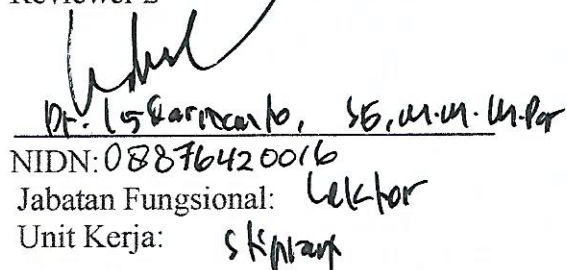 Reviewer 2
Dr. Iskarmanto, SE, M.M. M.Par
NIDN: 08876420016
Jabatan Fungsional: Lektor
Unit Kerja: Stipram